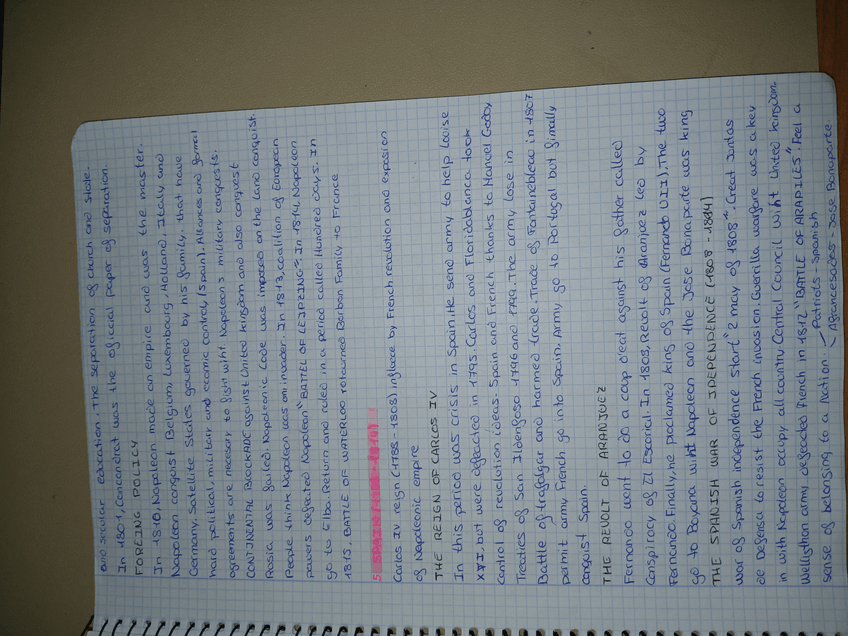 and secular education. The separation of church and state.
In 1801, Concondrat was the official paper of separation.
FOREING POLICY
In 1810, Napoleon made an empire and was the master.
Napoleon conquist Belgium, Luxembourg, Holland, Italy and
Germany. Satellite States governed by his family, that have
hard political, military and ecomic control, (Spain). Alliances and formal
agreements are necesary to fish wiht Napoleon's military conquists.
CONTINENTAL BLOCKADE against United kingdom and also conquest
Rusia was failed. Napoleonic Code was imposed on the land conquist.
People think Napoleon was an invader. In 1813, coalition of European
powers defeated Napoleon "BATTEL OF LEIPZING". In 1814, Napoleon
go to Elba. Return and ruled in a period called Hundred days. In
1815, BATTLE OF WATERLOO retourned Borbon Family to France
5. SPAIN (1788-1814)
Carlos IV reign (1788-1808) infloace by French revolution and expasion
of Napoleonic empire
THE REIGN OF CARLOS IV
In this period was crisis in Spain. He send army to help Louise
XVI, but were defeacted in 1795. Carlos and Floridablanca took
control of revolution ideas. Spain and French thanks to Manuel Godoy
Treaties of San Ildenfoso 1796 and 1799. The army lose in
Battle of trafalgar and harmed trade. Trade of Fontainebleao in 1807
permit army French go into Spain. Army go to Portugal but finally
conquist Spain.
THE REVOLT OF ARANJUEZ
Fernando went to do a coup d'eat against his father called
Conspiracy of El Escorial. In 1808, Revolt of Aranjuez led by
Fernando. Finally, he paclamed king of Spain (Fernando VII). The two
go to Bayona wiht Napoleon and the Jose Bonaparte was king
THE SPANISH WAR OF IDEPENDENCE (1808-1814)
War of Spanish independence start "2 may of 1808". Creat Juntas
de Defensa to resist the French invasion. Guerilla warfare was a key
in with Napoleon occupy all country Control Council wiht United kingdom.
Welligthon army defeacted French in 1812 "BATTLE OF ARAPILES". Feel a
sense of belonsing to a nation. Patriots-Spanish
Afrancesados-Jose Bonaparte.